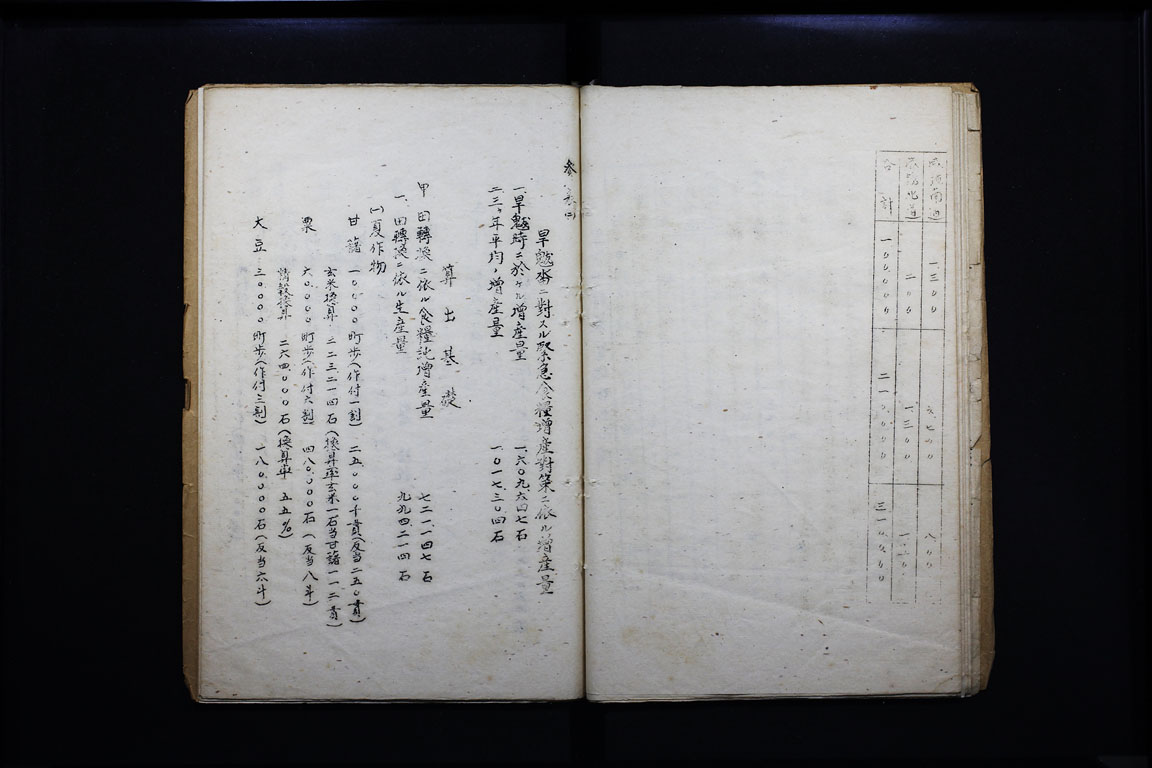 咸鏡南道 一三〇〇 六七〇〇 八〇〇〇
咸鏡北道 二〇〇 一、三〇〇
合計 一〇〇〇〇〇 二一〇〇〇〇 三一〇〇〇〇
参考四
旱魃畓ニ對スル緊急食糧增產對策ニ依ル增產量
一、旱魃時ニ於ケル增產量 一、六〇九、六四七石
二、三ヶ年平均ノ增產量 一、〇一七、三〇四石
算出基礎
甲 田轉換ニ依ル食糧訛增產量 七二一、一四七石
一、田轉換ニ依ル生產量 九九四、二一四石
(一)夏作物
甘藷 一〇、〇〇〇町步(作付一割) 二五、〇〇〇千貫(反当二五〇貫)
玄米換算 二二三、二一四石(換算率玄米一石当甘藷一一二貫)
粟 六〇、〇〇〇町步(作付六割) 四八〇、〇〇〇石(反当八斗)
精穀換算 二六四、〇〇〇石(換算率 五五%)
大豆 三〇、〇〇〇町步(作付三割) 一八〇、〇〇〇石(反当六斗)